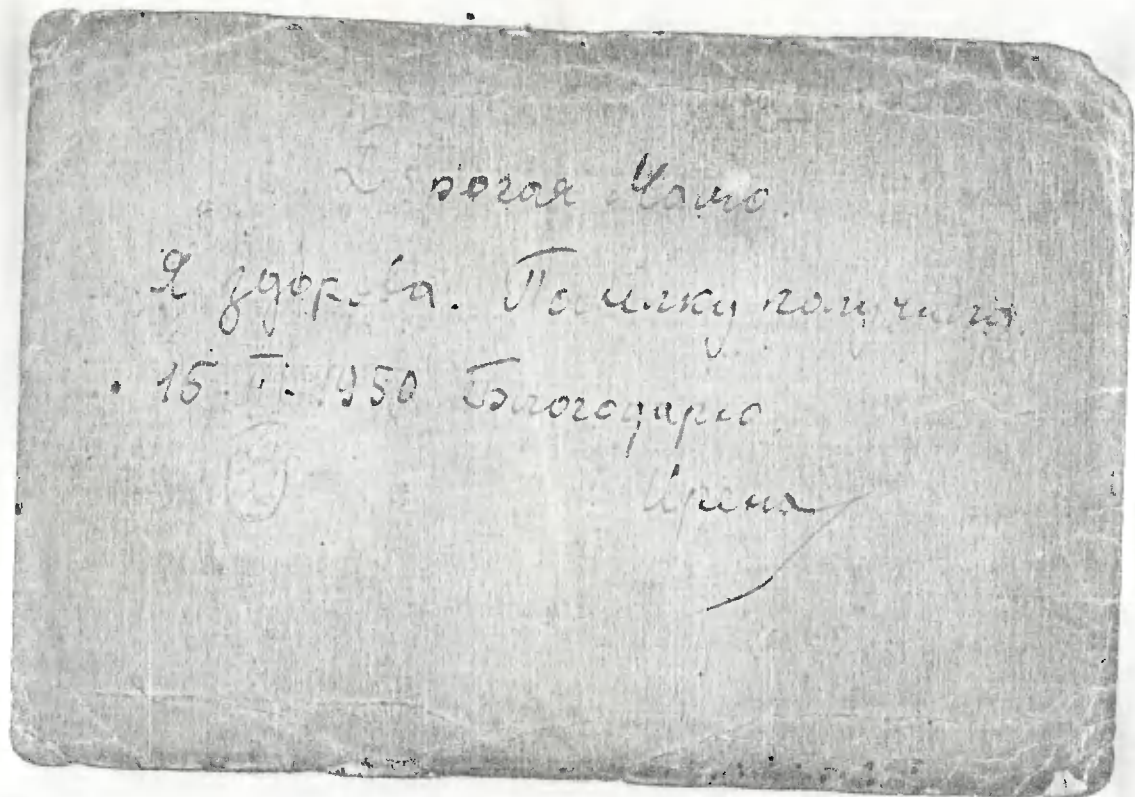 Дорогая Мама.
Я здорова. Посылку получила.
15 II. 1950 Благодарю.
Ирина